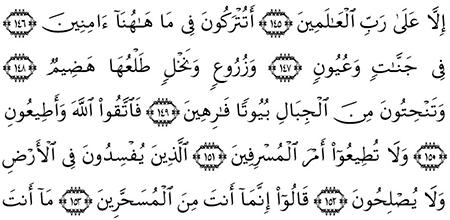 إِلَّا عَلَىٰ رَبِّ ٱلْعَـٰلَمِينَ ١٤٥ أَتُتْرَكُونَ فِى مَا هَـٰهُنَآ ءَامِنِينَ ١٤٦
فِى جَنَّـٰتٍ وَعُيُونٍ ١٤٧ وَزُرُوعٍ وَنَخْلٍ طَلْعُهَا هَضِيمٌ ١٤٨
وَتَنْحِتُونَ مِنَ ٱلْجِبَالِ بُيُوتًا فَـٰرِهِينَ ١٤٩ فَٱتَّقُوا۟ ٱللَّهَ وَأَطِيعُونِ
١٥٠ وَلَا تُطِيعُوٓا۟ أَمْرَ ٱلْمُسْرِفِينَ ١٥١ ٱلَّذِينَ يُفْسِدُونَ فِى ٱلْأَرْضِ
وَلَا يُصْلِحُونَ ١٥٢ قَالُوٓا۟ إِنَّمَآ أَنتَ مِنَ ٱلْمُسَحَّرِينَ ١٥٣ مَآ أَنتَ